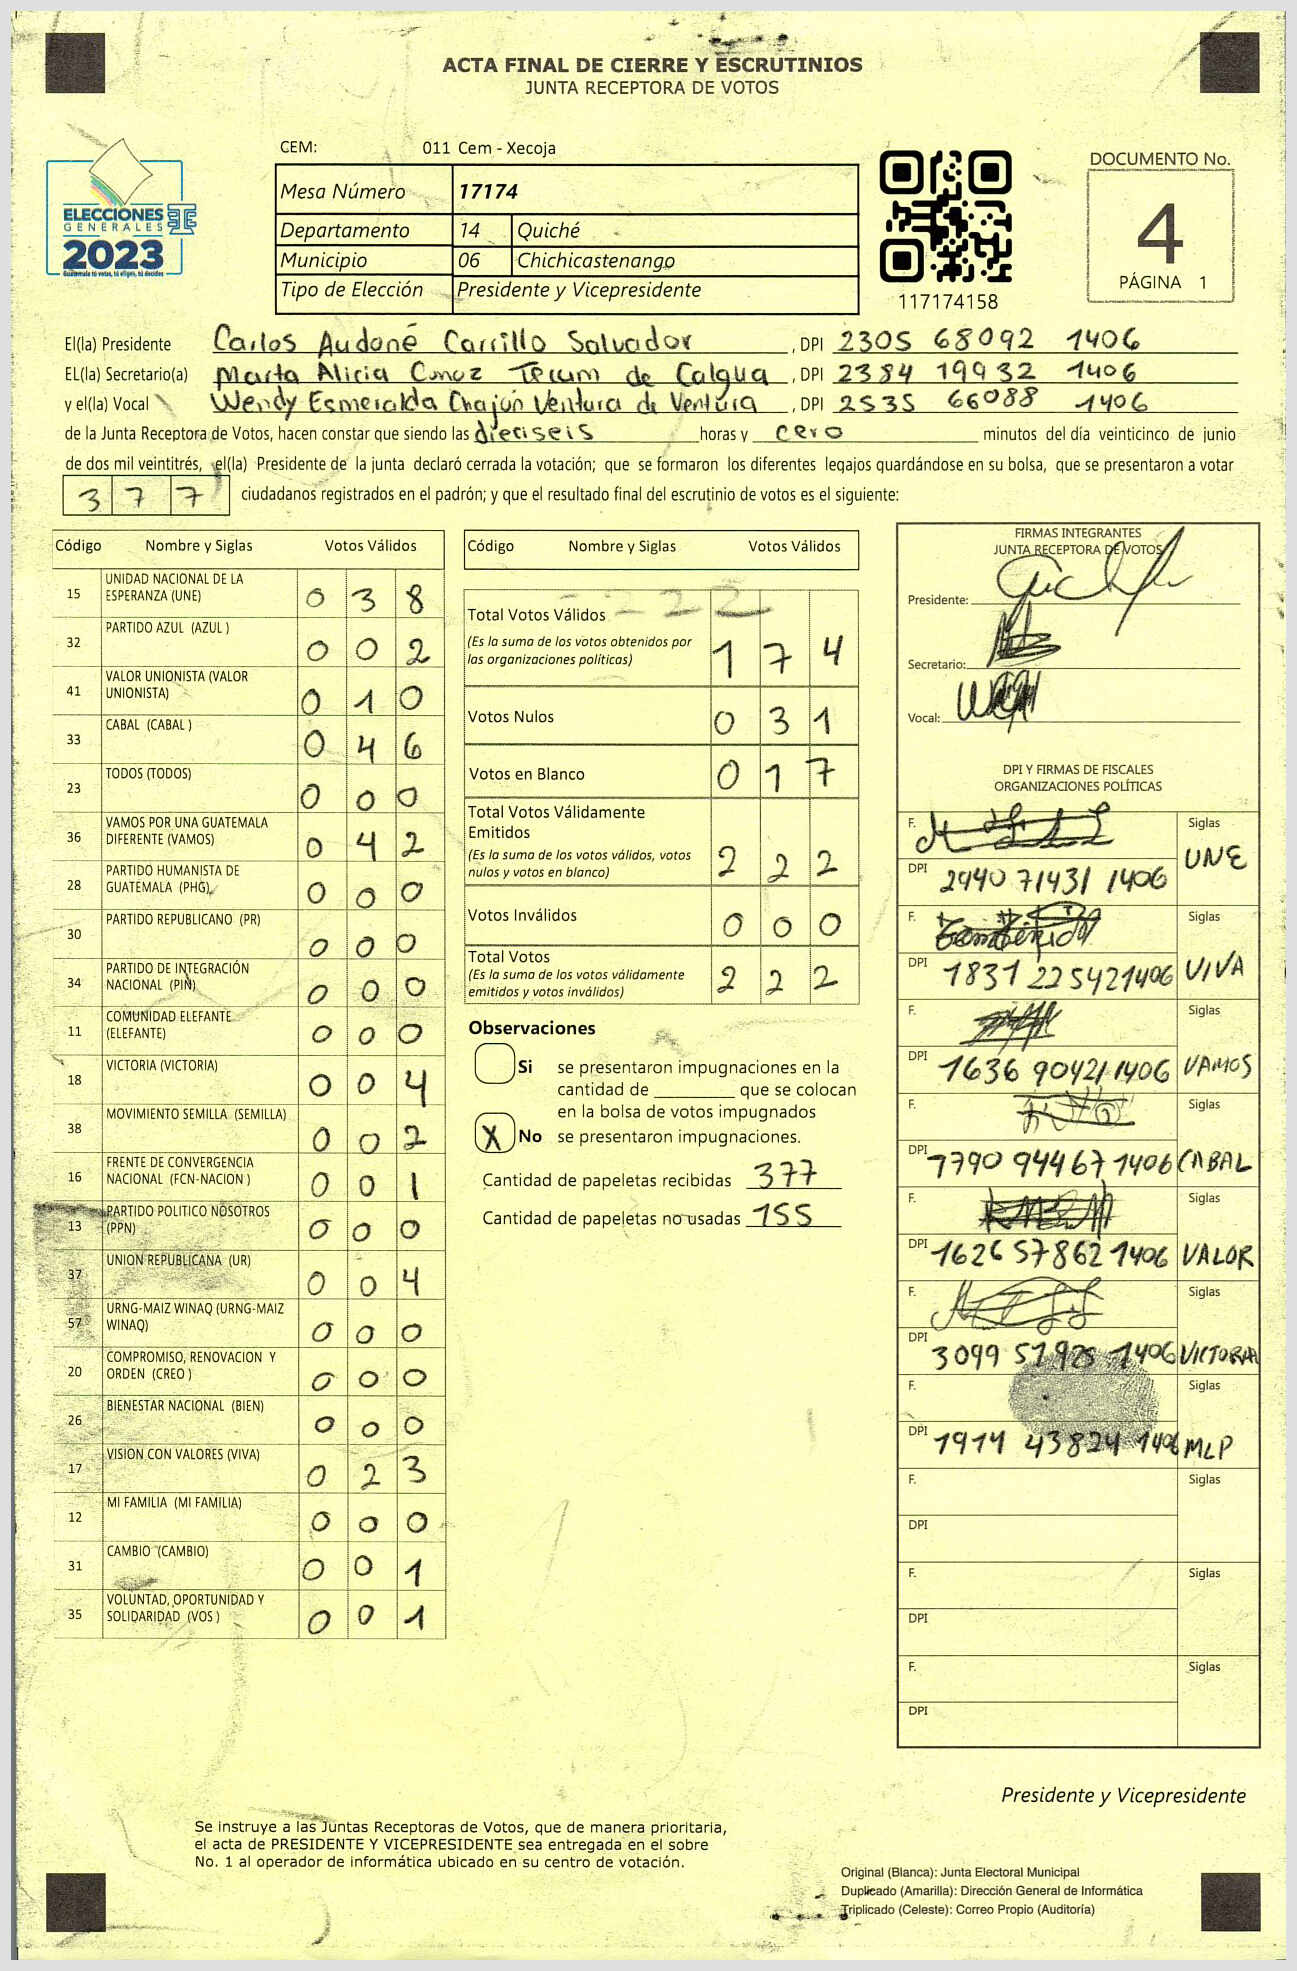 ACTA FINAL DE CIERRE Y ESCRUTINIOS
JUNTA RECEPTORA DE VOTOS
ELECCIONES
GENERALES
2023
Guatemala tú votas, tú eliges, tú decides
CEM: 011 Cem - Xecoja
Mesa Número 17174
Departamento 14 Quiché
Municipio 06 Chichicastenango
Tipo de Elección Presidente y Vicepresidente
117174158
DOCUMENTO No.
4
PÁGINA 1
El(la) Presidente Carlos Audoné Carrillo Salvador, DPI 2305 68092 1406
EL(la) Secretario(a) Marta Alicia Tecum de Calgua, DPI 2384 19932 1406
y el(la) Vocal Wendy Esmeralda Chajón Ventura de Ventura, DPI 2535 66088 1406
de la Junta Receptora de Votos, hacen constar que siendo las dieciseis horas y cero minutos del día veinticinco de junio
de dos mil veintitrés, el(la) Presidente de la junta declaró cerrada la votación; que se formaron los diferentes legajos guardándose en su bolsa, que se presentaron a votar
377 ciudadanos registrados en el padrón; y que el resultado final del escrutinio de votos es el siguiente:
Código Nombre y Siglas Votos Válidos
15 UNIDAD NACIONAL DE LA ESPERANZA (UNE) 0 3 8
32 PARTIDO AZUL (AZUL ) 0 0 2
41 VALOR UNIONISTA (VALOR UNIONISTA) 0 1 0
33 CABAL (CABAL ) 0 4 6
23 TODOS (TODOS) 0 0 0
36 VAMOS POR UNA GUATEMALA DIFERENTE (VAMOS) 0 4 2
28 PARTIDO HUMANISTA DE GUATEMALA (PHG) 0 0 0
30 PARTIDO REPUBLICANO (PR) 0 0 0
34 PARTIDO DE INTEGRACIÓN NACIONAL (PIN) 0 0 0
11 COMUNIDAD ELEFANTE (ELEFANTE) 0 0 0
18 VICTORIA (VICTORIA) 0 0 4
38 MOVIMIENTO SEMILLA (SEMILLA) 0 0 2
16 FRENTE DE CONVERGENCIA NACIONAL (FCN-NACION ) 0 0 1
13 PARTIDO POLITICO NOSOTROS (PPN) 0 0 0
37 UNION REPUBLICANA (UR) 0 0 4
57 URNG-MAIZ WINAQ (URNG-MAIZ WINAQ) 0 0 0
20 COMPROMISO, RENOVACION Y ORDEN (CREO ) 0 0 0
26 BIENESTAR NACIONAL (BIEN) 0 0 0
17 VISION CON VALORES (VIVA) 0 2 3
12 MI FAMILIA (MI FAMILIA) 0 0 0
31 CAMBIO (CAMBIO) 0 0 1
35 VOLUNTAD, OPORTUNIDAD Y SOLIDARIDAD (VOS ) 0 0 1
Código Nombre y Siglas Votos Válidos
222
Total Votos Válidos 1 7 4
(Es la suma de los votos obtenidos por
las organizaciones políticas)
Votos Nulos 0 3 1
Votos en Blanco 0 1 7
Total Votos Válidamente
Emitidos 2 2 2
(Es la suma de los votos válidos, votos
nulos y votos en blanco)
Votos Inválidos 0 0 0
Total Votos 2 2 2
(Es la suma de los votos válidamente
emitidos y votos inválidos)
Observaciones
Si se presentaron impugnaciones en la
cantidad de ________ que se colocan
en la bolsa de votos impugnados
X No se presentaron impugnaciones.
Cantidad de papeletas recibidas 377
Cantidad de papeletas no usadas 155
FIRMAS INTEGRANTES
JUNTA RECEPTORA DE VOTOS
Presidente:
Secretario:
Vocal:
DPI Y FIRMAS DE FISCALES
ORGANIZACIONES POLÍTICAS
F. Siglas UNE
DPI 2940 71431 1406
F. Siglas VIVA
DPI 1831 22542 1406
F. Siglas VAMOS
DPI 1636 90421 1406
F. Siglas CABAL
DPI 7790 94467 1406
F. Siglas VALOR
DPI 1626 57862 1406
F. Siglas VICTORIA
DPI 3099 51925 1406
F. Siglas MLP
DPI 1914 43824 1406
F. Siglas
DPI
F. Siglas
DPI
F. Siglas
DPI
Presidente y Vicepresidente
Se instruye a las Juntas Receptoras de Votos, que de manera prioritaria,
el acta de PRESIDENTE Y VICEPRESIDENTE sea entregada en el sobre
No. 1 al operador de informática ubicado en su centro de votación.
Original (Blanca): Junta Electoral Municipal
Duplicado (Amarilla): Dirección General de Informática
Triplicado (Celeste): Correo Propio (Auditoría)